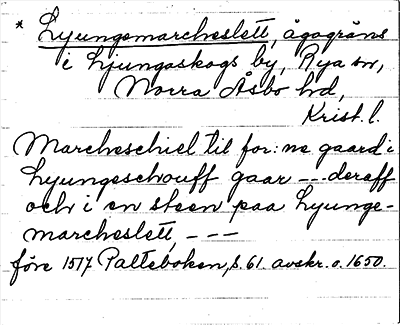 * Ljungemarcheslett, ägogräns
i Ljungaskogs by, Rya sn,
Norra Åsbo hd,
Krist. l.
Marcheschiel til for: ne gaard i
Lyungeschouff gaar --- deraff
och i en steen paa Lyunge-
marcheslett, - - -
före 1517 Palteboken, s. 61. avskr. o. 1650.